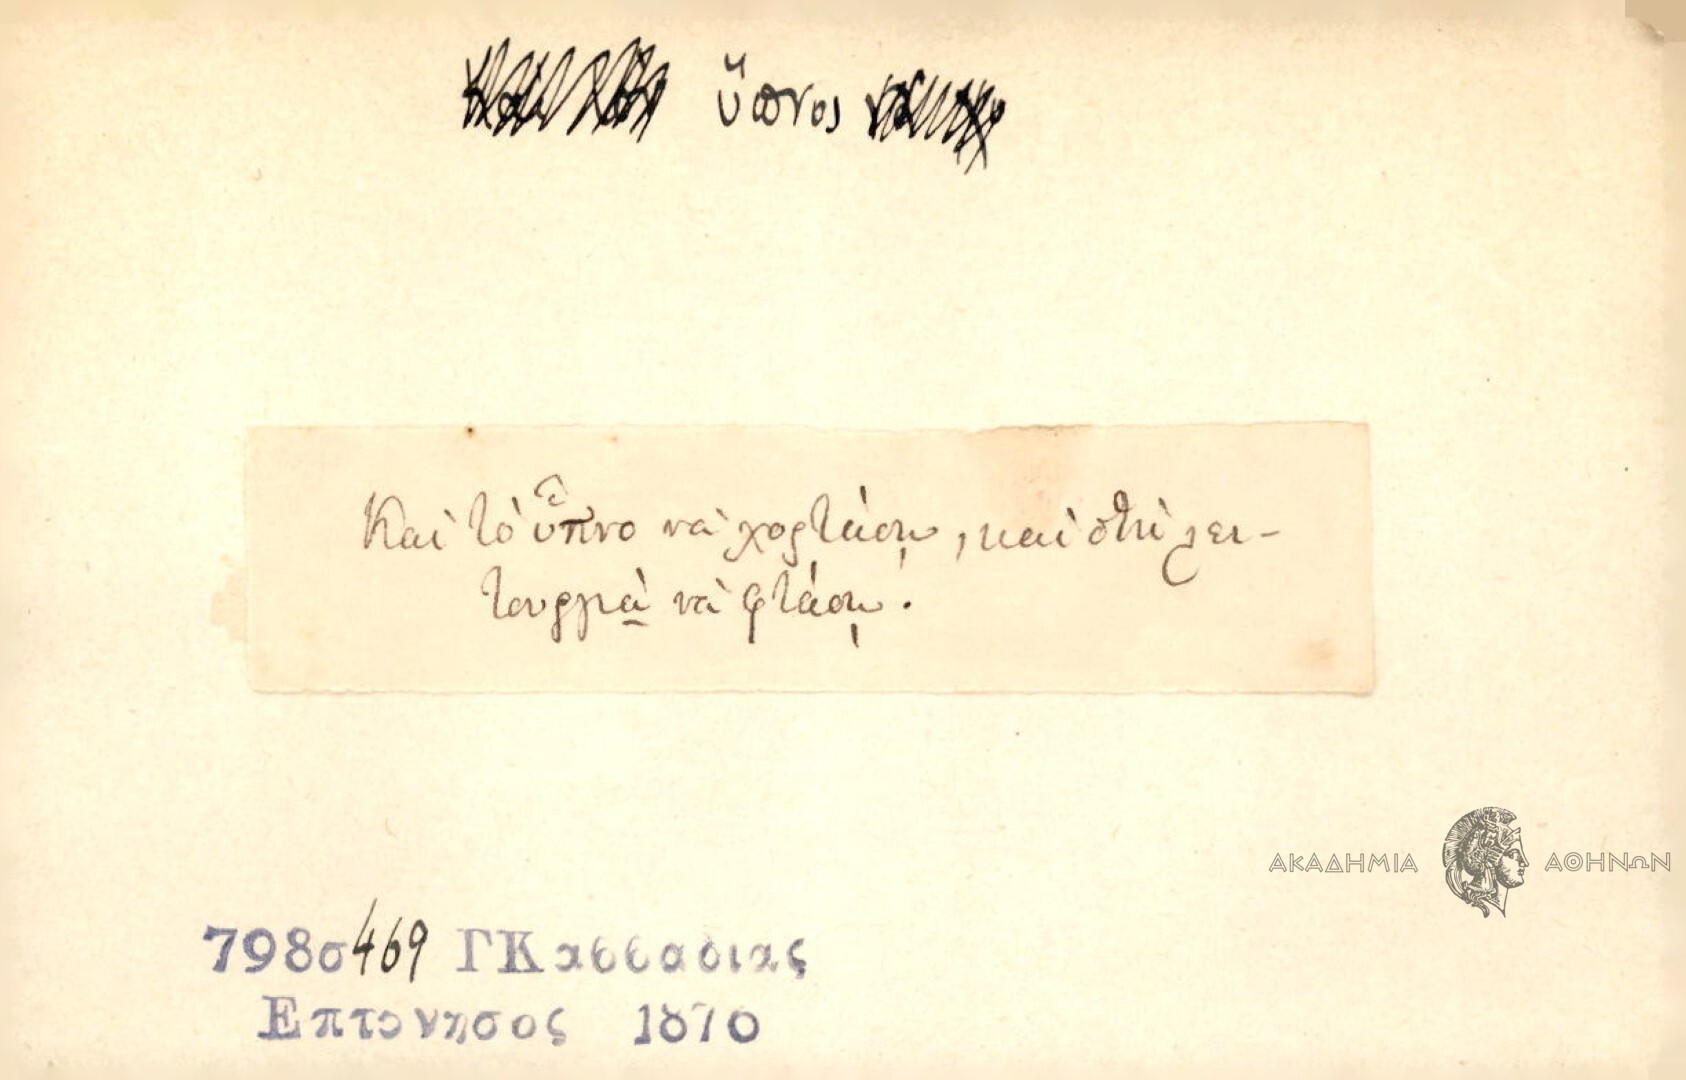 ὕπνος
Καὶ τὸ ὕπνο νὰ χορτάσῃ, καὶ στὴ λει-
τουργιὰ νὰ φτάσῃ.
ΑΚΑΔΗΜΙΑ ΑΘΗΝΩΝ
798σ469 ΓΚασσαδιας
Επτονησος 1870